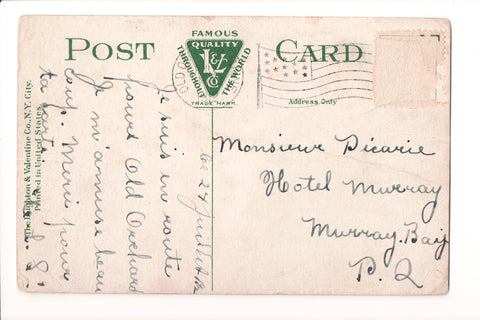 POST CARD
FAMOUS
QUALITY
THROUGHOUT THE WORLD
L&V
Co
TRADE MARK
Address Only
OLD
The Leighton & Valentine Co., N.Y. City.
Printed in United States.
Le 24 juillet
Je suis en route
pour Old Orchard
Je m'amuse beau
coup. Merci pour
ta carte.
Monsieur Picarie
Hotel Murray
Murray Bay
P. Q